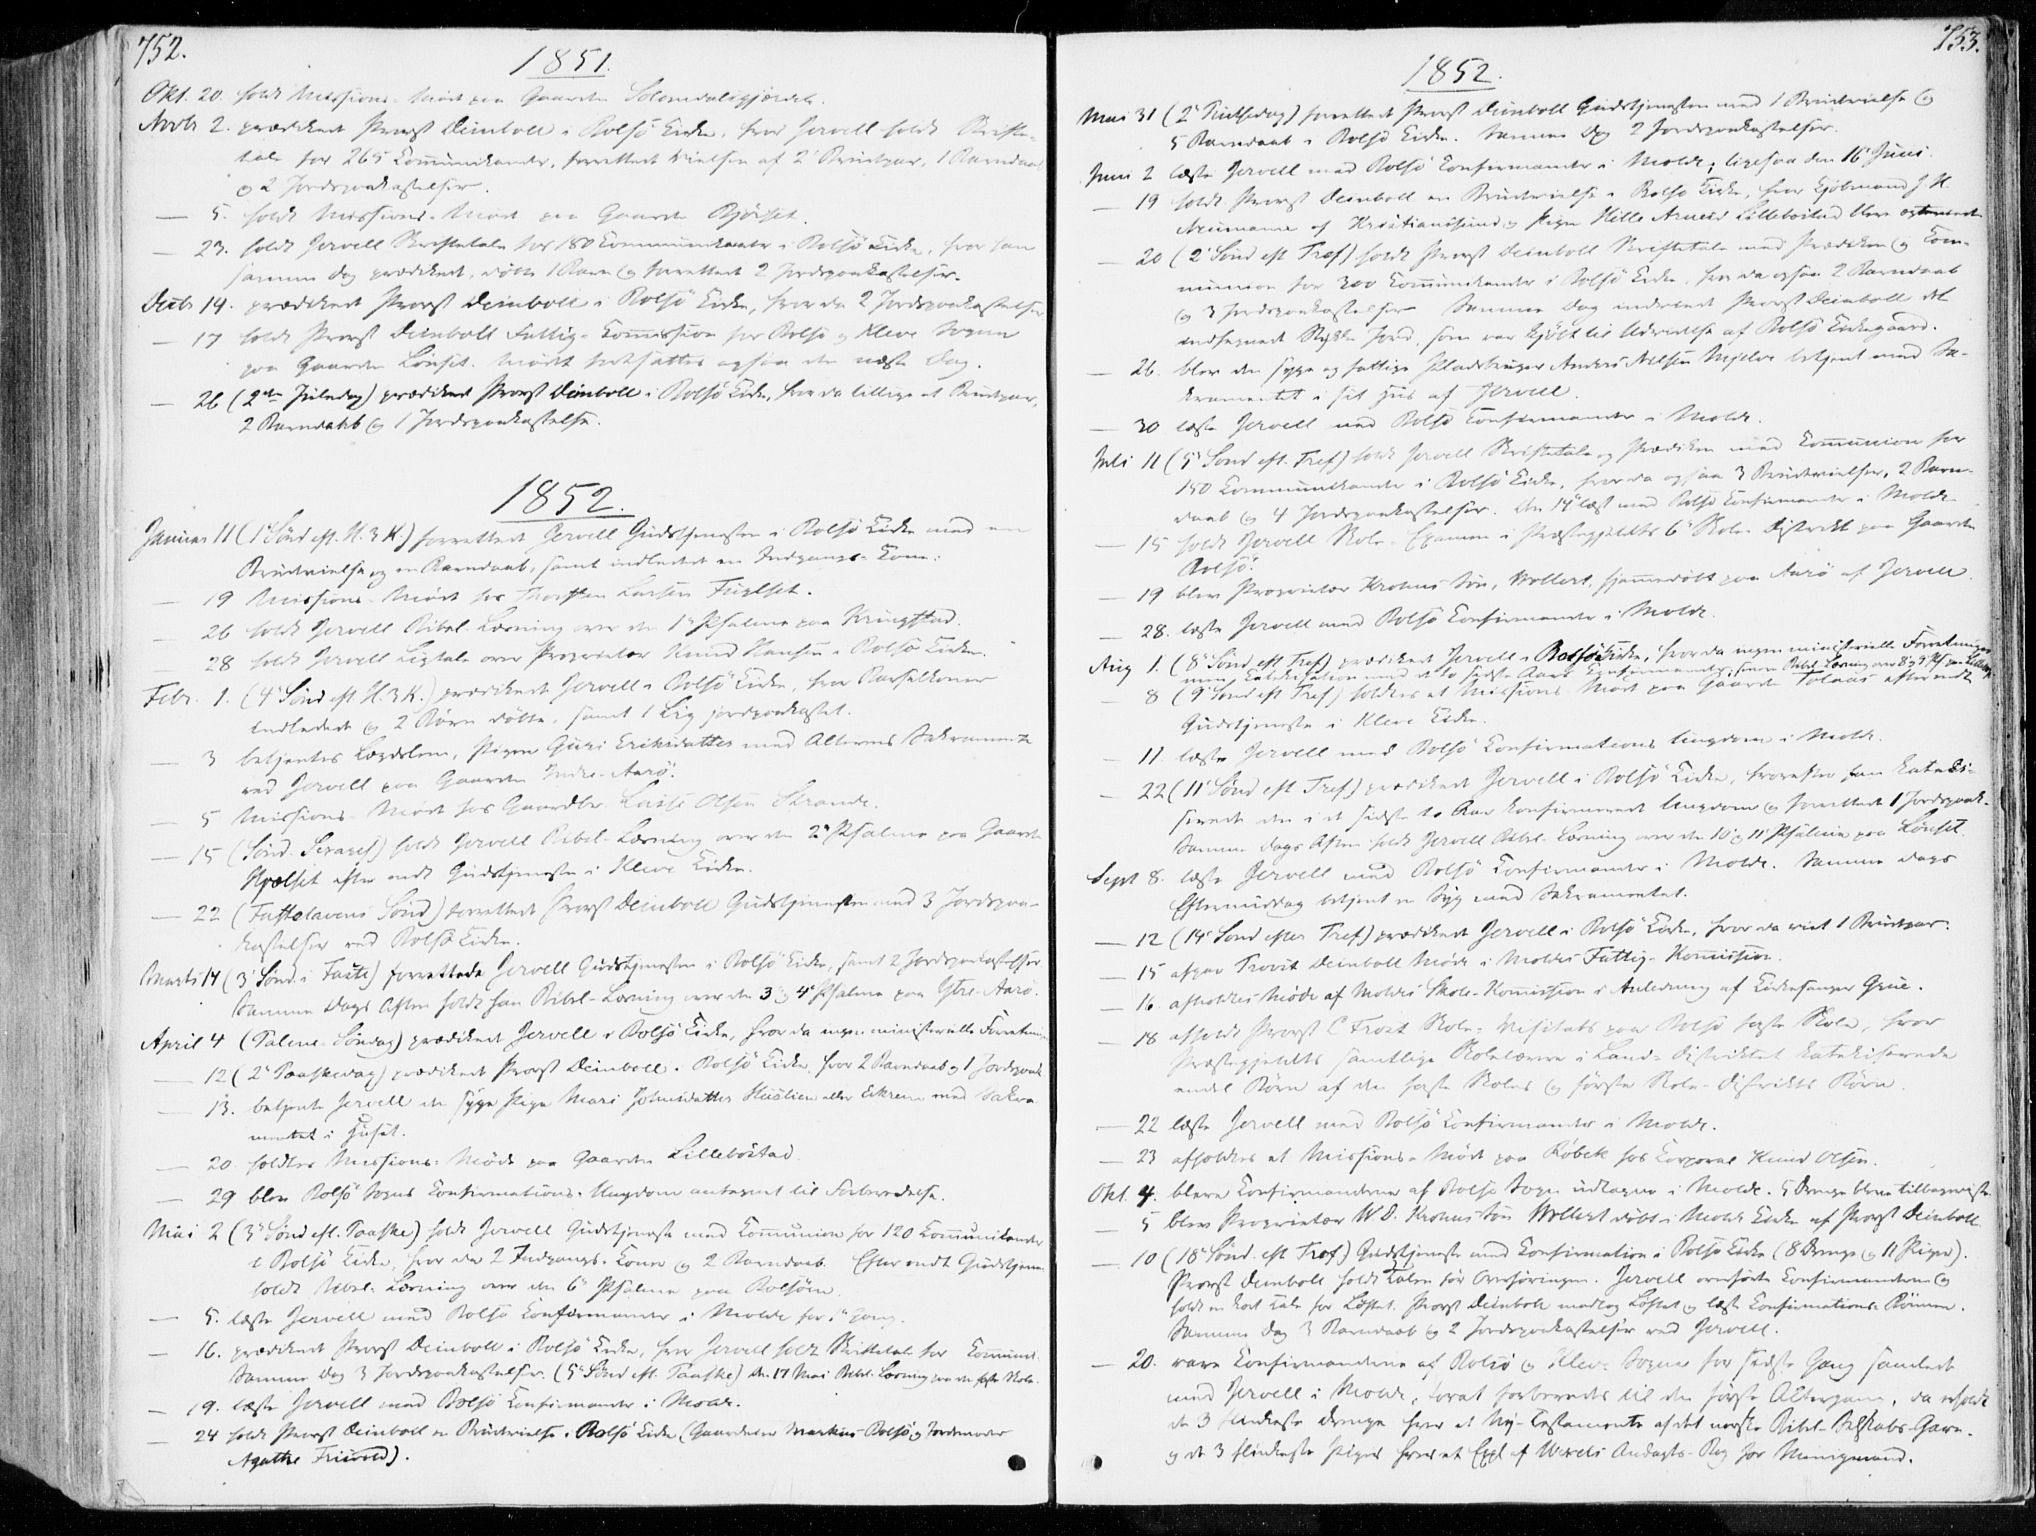 752.
1851.
Okt. 20. holdt Missions-Møde paa Gaarden Solemdalsgjærdet.
Novbr 2. prædikede Provst Deinboll i Bolsø Kirke, hvor Jervell holdt Skrifte-
tale for 265 Kommunikanter, forrettede Vielsen af 2 Brudepar, 1 Barnedaab
og 2 Jordspaakastelser.
— 5. holdt Missions-Møde paa Gaarden Bjørset.
— 23. holdt Jervell Skriftetale for 180 Kommunikanter i Bolsø Kirke, hvor han
samme Dag prædikede, døbte 1 Barn og forrettede 2 Jordspaakastelser.
Decbr 14. prædikede Provst Deinboll i Bolsø Kirke, hvor da 2 Jordspaakastelser
— 17 holdt Provst Deinboll Fattig-Kommission for Bolsø og Kleve Sogne
paa Gaarden Lønset. Mødet fortsattes ogsaa den næste Dag.
— 26 (2den Juledag) prædikede Provst Deinboll i Bolsø Kirke, hvor da tillige et Brudepar,
2 Barnedaab og 1 Jordspaakastelse.
1852.
Januar 11 (1ste Sønd. eft. H. 3 K.) forrettede Jervell Gudstjenesten i Bolsø Kirke med en
Brudevielse og en Barnedaab, samt indledede en Indgangs-Kone.
— 19 Missions-Møde hos Thorsten Larsen Fuglset.
— 26 holdt Jervell Bibel-Læsning over den 1ste Psalme paa Kringstad.
— 28 holdt Jervell Ligtale over Proprietær Knud Hansen i Bolsø Kirke.
Febr. 1. (4de Sønd. eft. H. 3 K.) prædikede Jervell i Bolsø Kirke, hvor Barselkoner
indledede og 2 Børn døbte, samt 1 Lig jordpaakastet.
— 3 betjentes Lægdslem, Pigen Guri Eriksdatter med Alterens Sakramente
ved Jervell paa Gaarden Indre-Aarø.
— 5 Missions-Møde hos Gaardbr. Lasse Olsen Strande.
— 15 (Sønd. Sexages) holdt Jervell Bibel-Læsning over den 2den Psalme paa Gaarden
Hjælset efter endt Gudstjeneste i Kleve Kirke.
— 22 (Fastelavens Sønd) forrettede Provst Deinboll Gudstjenesten med 3 Jordspaa-
kastelser ved Bolsø Kirke.
Marts 14 (3die Sønd. i Faste) forrettede Jervell Gudstjenesten i Bolsø Kirke, samt 2 Jordspaakastelser
Samme Dags Aften holdt han Bibel-Læsning over den 3die og 4de Psalme paa Ytre-Aarø.
April 4 (Palme-Søndag) prædikede Jervell i Bolsø Kirke, hvor da ingen ministerielle Forretninger
— 12 (2den Paaskedag) prædikede Provst Deinboll i Bolsø Kirke, hvor 2 Barnedaab og 1 Jordspaak.
— 13. betjente Jervell den syge Pige Mari Johnsdatter eller Ekrem med Sakra-
mentet i Huset.
— 20. holdtes Missions-Møde paa Gaarden Lillebostad.
— 29 blev Bolsø Sogns Confirmations-Ungdom antegnet til Forberedelse.
Mai 2 (3die Sønd. eft. Paaske) holdt Jervell Gudstjeneste med Kommunion for 120 Kommunikanter
i Bolsø Kirke, hvor da 2 Indgangs-Koner og 2 Barnedaab. Efter endt Gudstjene.
holdt Bibel-Læsning over den 6te Psalme paa Bolsøen.
— 5. læste Jervell med Bolsø Konfirmanter i Molde for 1ste Gang.
— 16. prædikede Provst Deinboll i Bolsø Kirke, hvor Jervell holdt Skriftetale for Kommuni.
Samme Dag 3 Jordspaakastelser. (5te Sønd eft. Paaske) Den 17 Mai Bibel-Læsning paa den faste Skole.
— 19. læste Jervell med Bolsø Konfirmanter i Molde.
— 24 holdt Provst Deinboll en Brudevielse i Bolsø Kirke (Gaardmand Markus Bolsø og Jordemoder
Agathe Friisvold).
753.
1852.
Mai 31 (2den Pintsedag) forrettede Provst Deinboll Gudstjenesten med 1 Brudevielse og
5 Barnedaab i Bolsø Kirke. Samme Dag 2 Jordspaakastelser.
Juni 2 læste Jervell med Bolsø Confirmanter i Molde; ligesaa den 16de Juni.
— 19 holdt Provst Deinboll en Brudevielse i Bolsø Kirke, hvor Kjøbmand J. H.
Neumann af Kristianssund og Pigen Hilla Arnesd. Lillebostad bleve
— 20 (2den Sønd eft Tref) holdt Provst Deinboll Skriftetale med Prædiken og Kom-
munion for 300 Kommunikanter i Bolsø Kirke, hvor da ogsaa 2 Barnedaab
og 3 Jordspaakastelser. Samme Dag indviede Provst Deinboll det
indhegnede Stykke Jord, som var kjøbt til Udvidelse af Bolsø Kirkegaard.
— 26. blev den syge og fattige Pladsbruger Anders Nielsen Mjelve betjent med Sa-
kramentet i sit Hus af Jervell.
— 30 læste Jervell med Bolsø Confirmanter i Molde.
Juli 11 (5te Sønd eft. Tref) holdt Jervell Skriftetale og Prædiken med Communion for
150 Communikanter i Bolsø Kirke, hvor da ogsaa 3 Brudevielser, 2 Barne-
daab og 4 Jordspaakastelser. Den 14de læst med Bolsø Confirmanter i Molde
— 15 holdt Jervell Skole-Examen i Præstegjeldets 6te Skole-Distrikt paa Gaarden
Bolsø.
— 19 blev Proprietær Krohns Søn, Wollert, hjemmedøbt paa Aarø af Jervell.
— 28. læste Jervell med Bolsø Confirmanter i Molde.
Aug 1. (8de Sønd eft Tref) prædikede Jervell i Bolsø Kirke, hvor da ingen ministerielle Forretninger
men Katekisation med de to sidste Aars Konfirmanter, samt Bibel-Læsning over 8de og 9de Ps paa
— 8 (9de Sønd eft Tref) holdtes et Missions-Møde paa Gaarden Tolaas efter endt
Gudstjeneste i Kleve Kirke.
— 11. læste Jervell med Bolsø Confirmations Ungdom i Molde.
— 22 (11te Sønd eft Tref) prædikede Jervell i Bolsø Kirke, hvorefter han kateki-
serede den i de sidste to Aar konfirmerede Ungdom og forrettede 1 Jordspaak-
Samme Dags Aften holdt Jervell Bibel-Læsning over den 10de og 11te Psalme paa Lønset.
Sept 8. læste Jervell med Bolsø Confirmanter i Molde. Samme Dags
Eftermiddag betjent en Syg med Sakramentet.
— 12 (14de Sønd efter Tref) prædikede Jervell i Bolsø Kirke, hvor da viet 1 Brudepar.
— 15 afgav Provst Deinboll Møde i Moldes Fattig-Kommission.
— 16 afholdtes Møde af Moldes Skole-Kommission i Anledning af Kirkesanger Grue.
— 18 afholdt Provst C Frost Skole-Visitats paa Bolsø faste Skole, hvor
Præstegjeldets samtlige Skolelærere i Land-Distriktet katekiserede
endel Børn af den faste Skoles og første Skole-Distrikts Børn.
— 22 læste Jervell med Bolsø Confirmanter i Molde.
— 23 afholdtes et Missions-Møde paa Røbek hos Korporal Knud Olsen.
Okt. 4. bleve Confirmanderne af Bolsø Sogn udtagne i Molde. 5 Drenge bleve tilbageviste.
— 5 blev Proprietær W D. Krohns Søn Wollert døbt i Molde Kirke af Provst Deinboll.
— 10 (18de Sønd. eft Tref) Gudstjeneste med Confirmation i Bolsø Kirke (8 Drenge og 11 Piger).
Provst Deinboll holdt Talen før Overhøringen. Jervell overhørte Confirmanderne og
holdt en kort Tale før Løftet. Provst Deinboll modtog Løftet og læste Confirmations-Bønnen.
Samme Dag 3 Barnedaab og 2 Jordspaakastelser ved Jervell.
— 20. vare Confirmanderne af Bolsø og Kleve Sogne for sidste Gang samlede
med Jervell i Molde, forat forberedes til den første Altergang, da erholdt
de 3 flinkeste Drenge hver et Ny-Testamente af det norske Bibel-Selskabs Gave.
og de 3 flinkeste Piger hver et Expl af Wexels Andagts-Bog for Menigmand.